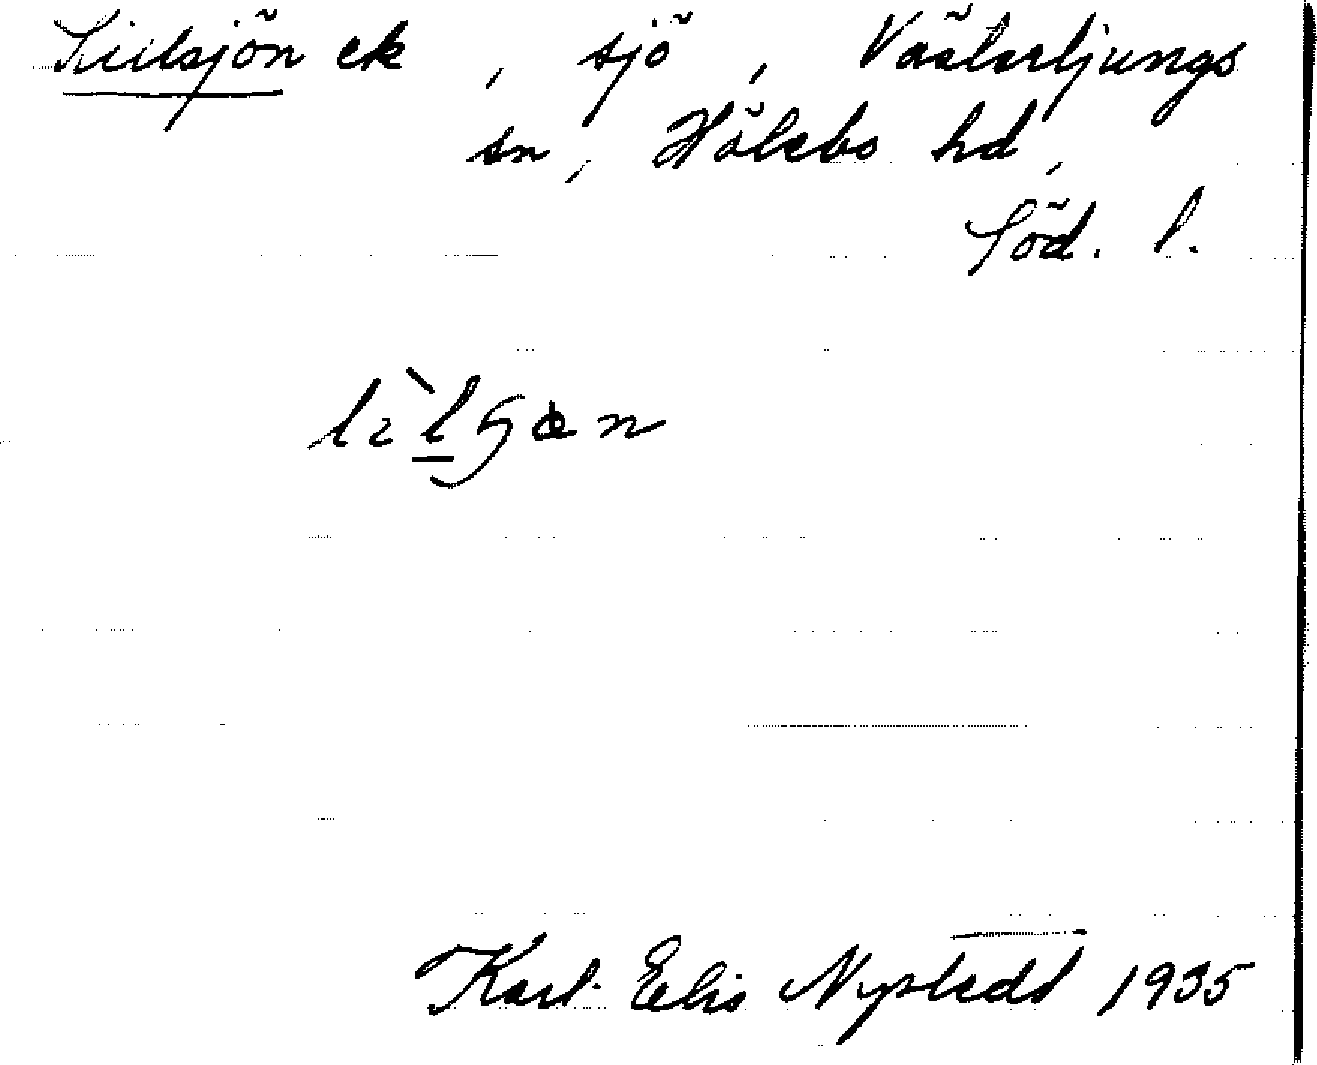 Lillsjön ek, sjö, Västerljungs
sn, Hölebo hd,
Söd. l.
Karl-Elis Nystedt 1935